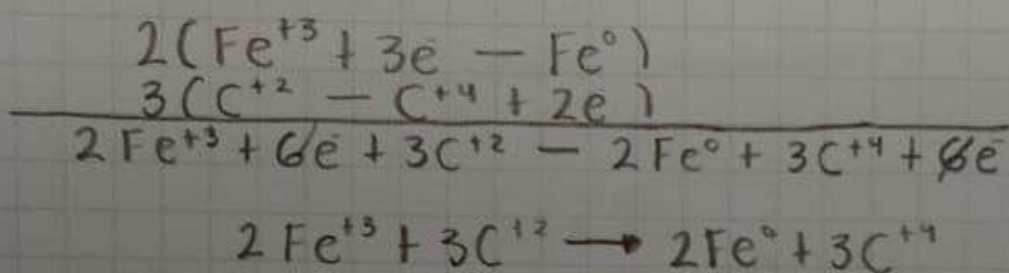 2(Fe⁺³ + 3e⁻ — Fe⁰)
3(C⁺² — C⁺⁴ + 2e⁻)
2Fe⁺³ + 6e⁻ + 3C⁺² — 2Fe⁰ + 3C⁺⁴ + 6e⁻
2Fe⁺³ + 3C⁺² → 2Fe⁰ + 3C⁺⁴